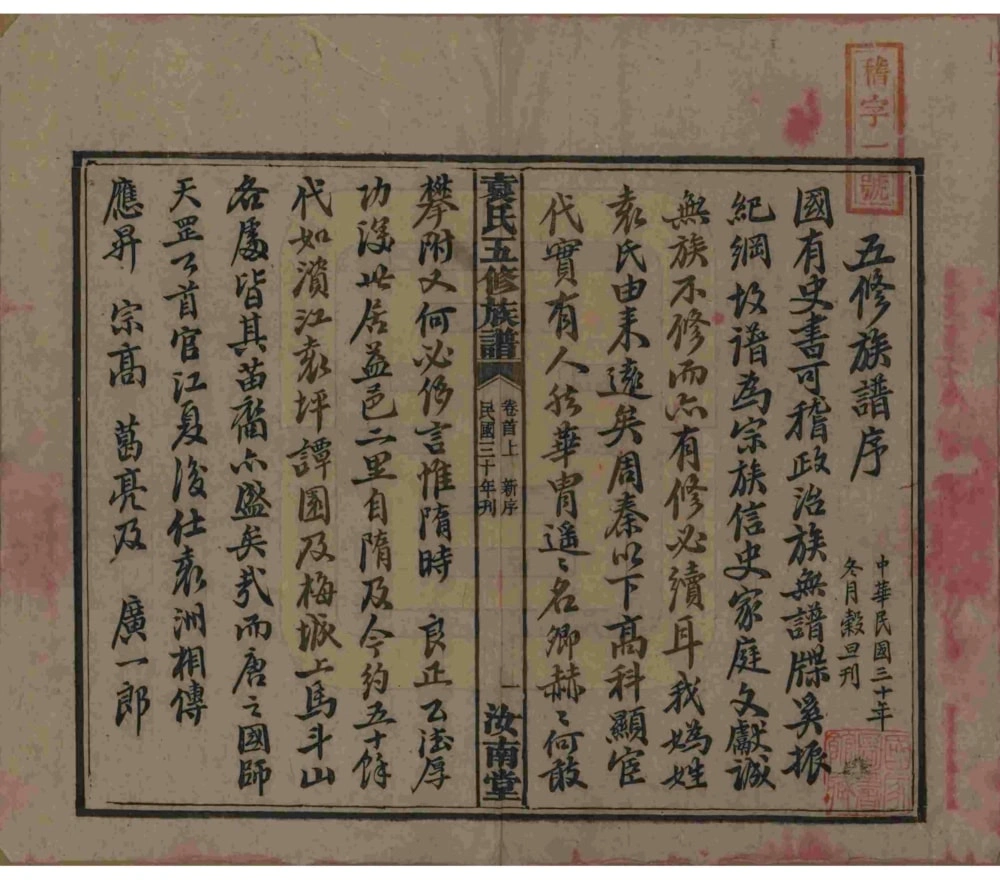 稽字一號
五修族譜序
中華民國三十年
冬月穀旦刊
國有史書可稽政治族無譜牒奚振
紀綱故譜為宗族信史家庭文獻誠
無族不修而亦有修必續耳我媯姓
袁氏由來遠矣周秦以下高科顯宦
代實有人然華胄遥〻名卿赫〻何敢
袁氏五修族譜
卷首上 新序
民國三十年刊
一
汝南堂
攀附又何必侈言惟隋時 良正公德厚
功深世居益邑二里自隋及今約五十餘
代如濱江袁坪譚園及梅城上馬斗山
各處皆其苗裔亦盛矣哉而唐之國師
天罡公首官江夏後仕袁洲相傳
應昇 宗高 葛亮及 廣一郎